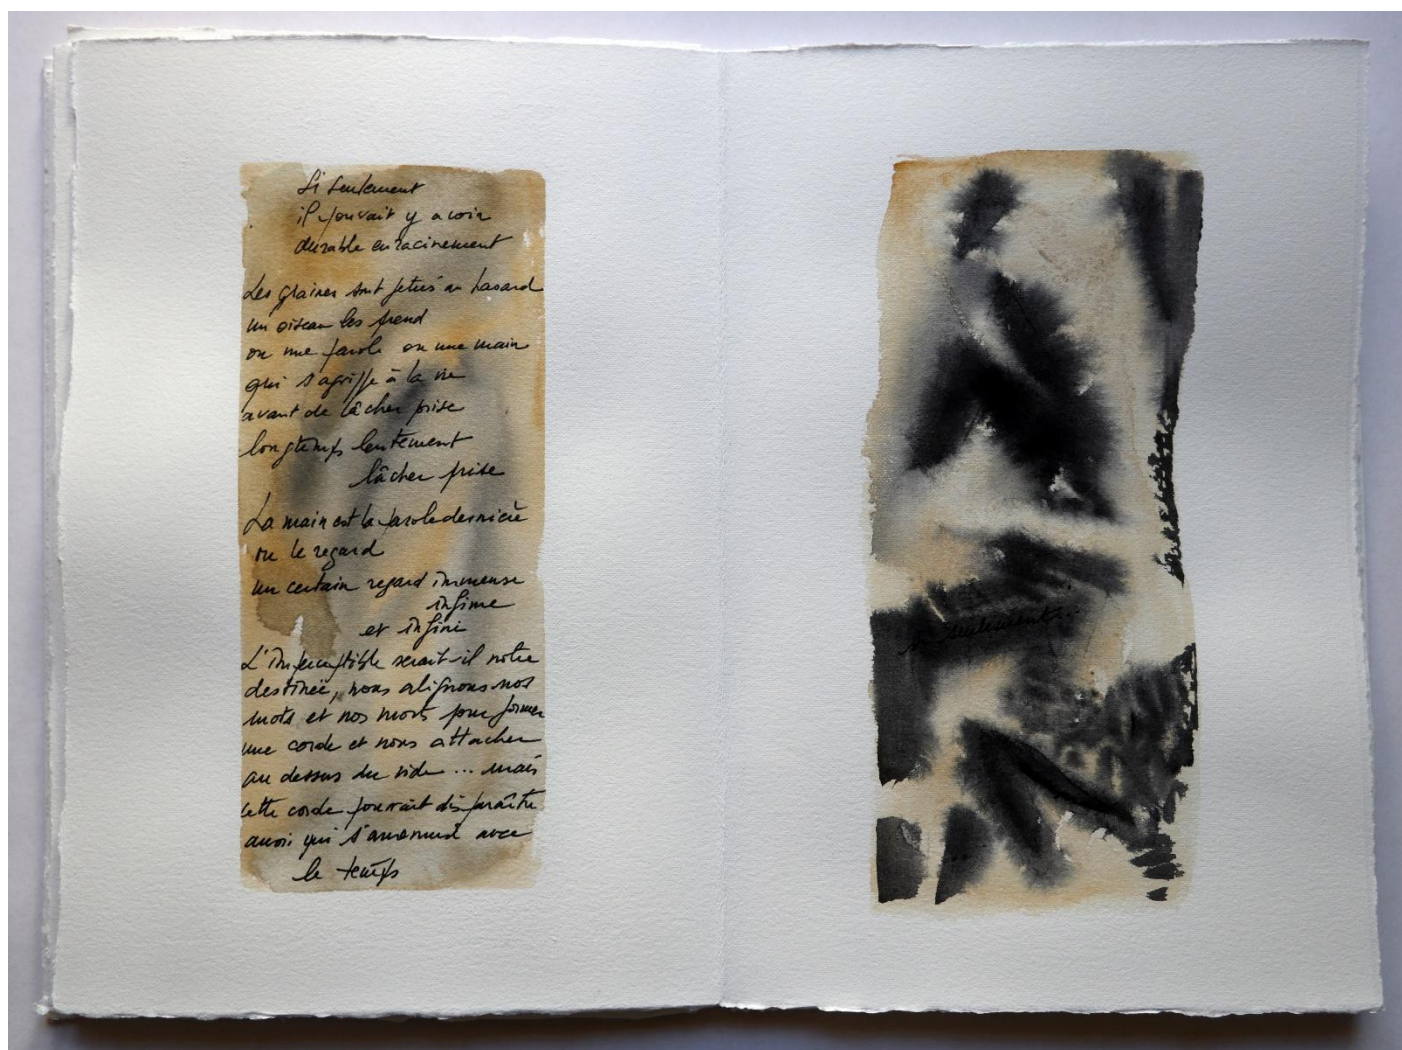 Si seulement
il pouvait y avoir
durable enracinement
Les graines sont jetées au hasard
un oiseau les prend
ou une parole ou une main
qui s'agrippe à la vie
avant de lâcher prise
longtemps lentement
lâcher prise
La main est la parole dernière
ou le regard
un certain regard immense
infime
et infini
L'imperceptible serait-il notre
destinée, nous alignons nos
mots et nos morts pour former
une corde et nous attacher
au dessus du vide ... mais
cette corde pourrait disparaître
aussi qui s'amenuise avec
le temps
si seulement...